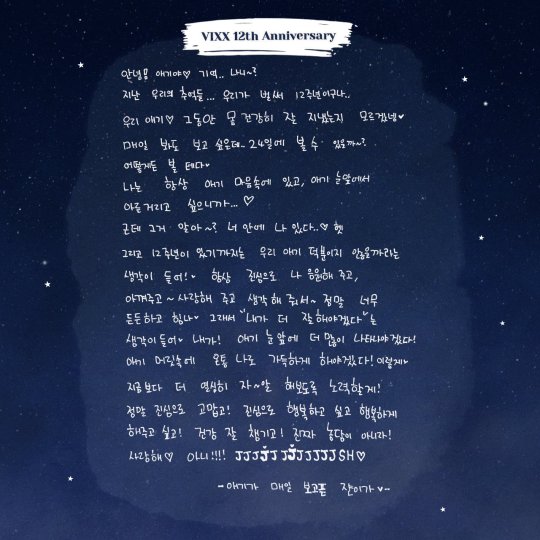 VIXX 12th Anniversary
안녕 애기야♡ 기억.. 나니~?
지난 우리의 추억들... 우리가 벌써 12주년이구나..
우리 애기♡ 그동안 몸 건강히 잘 지냈는지 모르겠네♡
매일 봐도 보고 싶은데~ 24일에 볼 수 있을까~?
어떻게든 볼 테다♡
나는 항상 애기 마음속에 있고, 애기 눈앞에서
아른거리고 싶으니까...♡
근데 그거 알아~? 너 안에 나 있다..♡ 헷
그리고 12주년이 있기까지는 우리 애기 덕분이지 않을까라는
생각이 들어!♡ 항상 진심으로 나 응원해 주고,
아껴주고~ 사랑해 주고 생각해 줘서~ 정말 너무
든든하고 힘나♡ 그래서 "내가 더 잘해야겠다"는
생각이 들어♡ 내가! 애기 눈앞에 더 많이 나타나야겠다!
애기 머릿속에 온통 나로 가득하게 해야겠다! 이렇게♡
지금보다 더 열심히 자~알 해보도록 노력할게!
정말 진심으로 고맙고! 진심으로 행복하고 싶고 행복하게
해주고 싶고! 건강 잘 챙기고! 진짜 농담이 아니라!
사랑해♡ 아니!!!! JJJJJJJJJJJSH♡
-애기가 매일 보고픈 쟌이가♡-